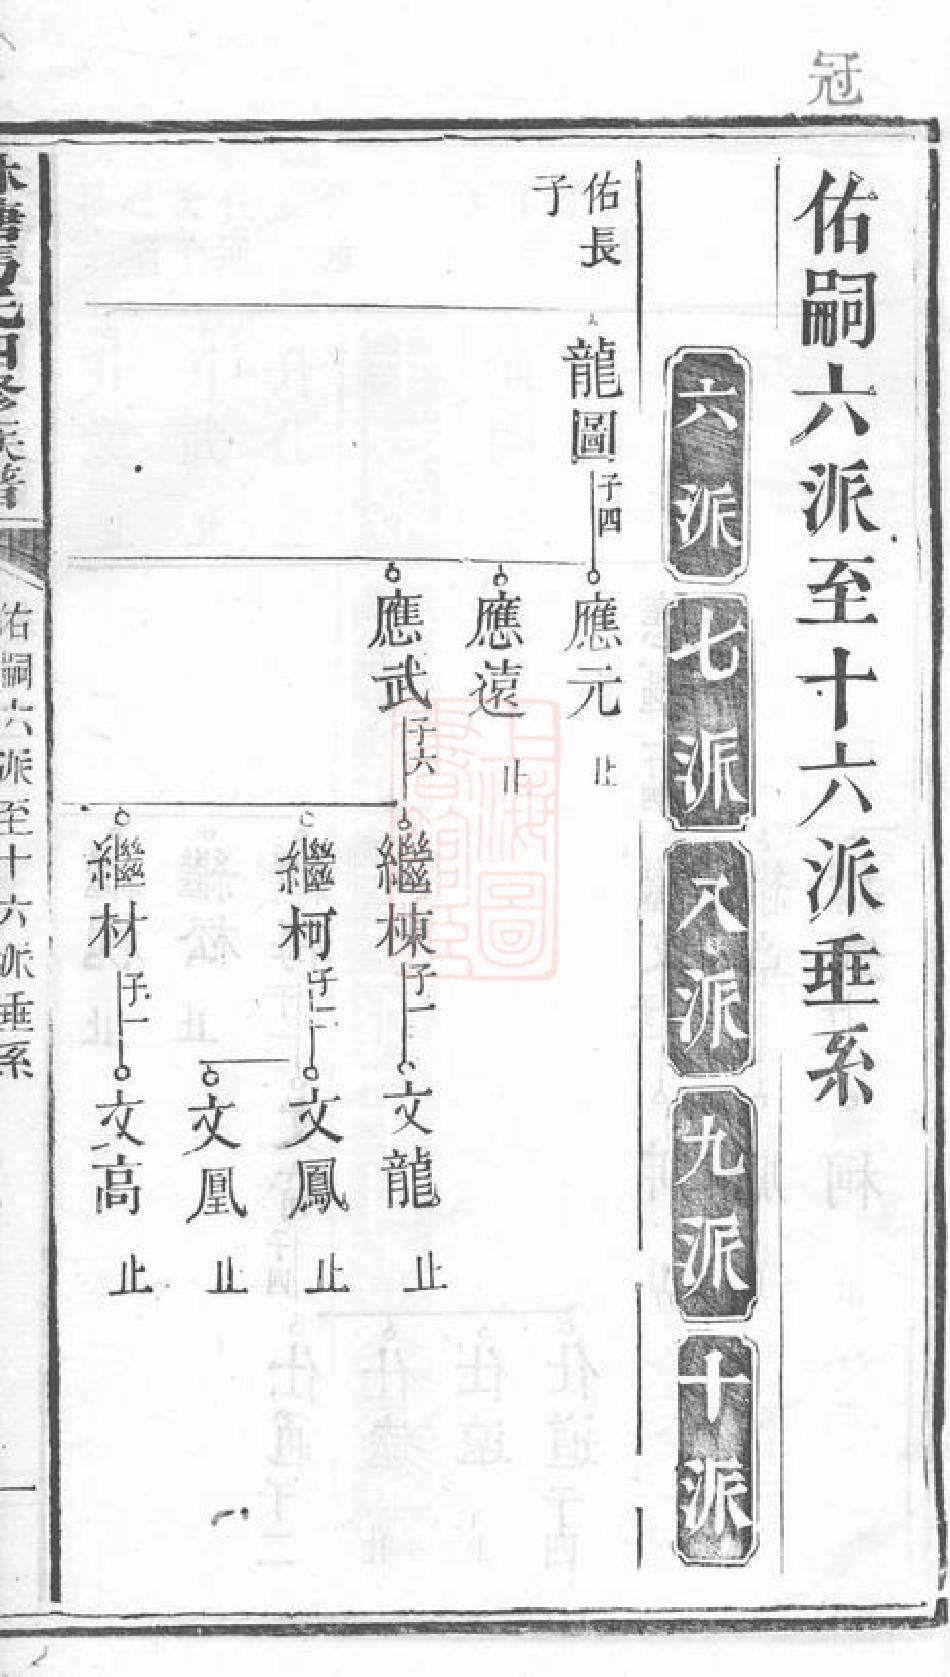 冠
佑嗣六派至十六派垂系
六派
七派
八派
九派
十派
佑長
子
龍圖
子四
應元
止
應遠
止
應武
子六
繼棟
子一
文龍
止
繼柯
子二
文鳳
止
文凰
止
繼材
子一
文高
止
氏四修族譜
佑嗣六派至十六派垂系
一
上海圖
書館藏